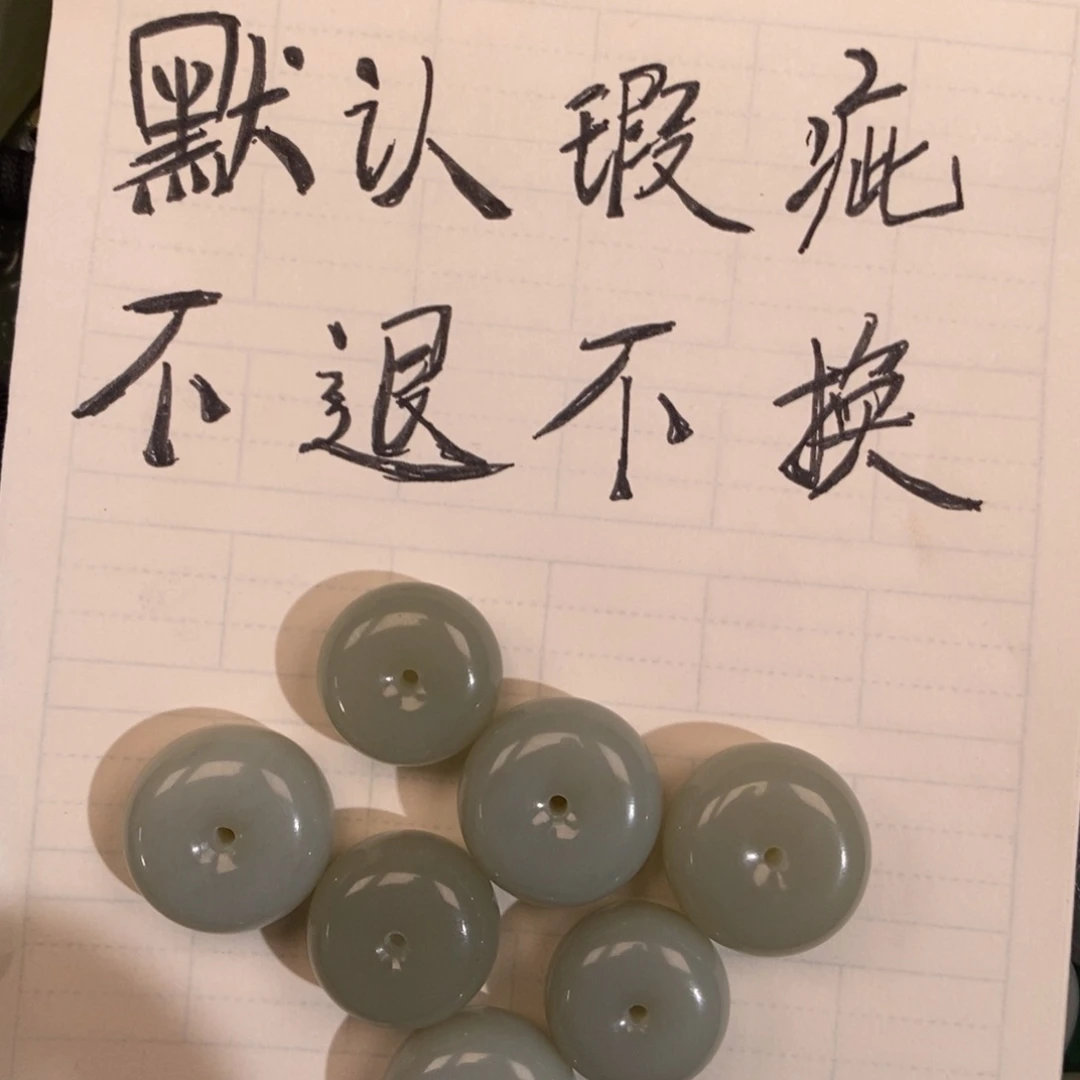 默认瑕疵
不退不换